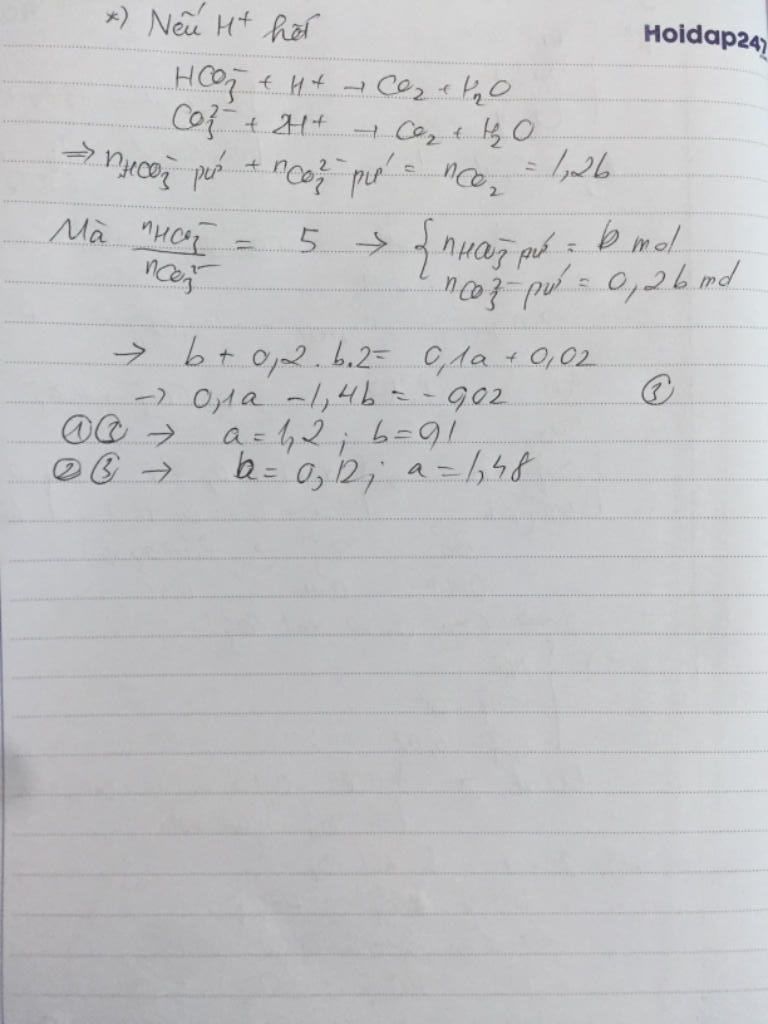 *) Nếu H⁺ hết
Hoidap247
HCO₃⁻ + H⁺ → CO₂ + H₂O
CO₃²⁻ + 2H⁺ → CO₂ + H₂O
⇒ nHCO₃⁻ pứ + nCO₃²⁻ pứ = nCO₂ = 1,2b
Mà nHCO₃⁻ / nCO₃²⁻ = 5 → { nHCO₃⁻ pứ = b mol
nCO₃²⁻ pứ = 0,2b mol
→ b + 0,2.b.2 = 0,1a + 0,02
→ 0,1a - 1,4b = -0,02 ③
①③ → a = 1,2 ; b = 0,1
②③ → b = 0,12; a = 1,48